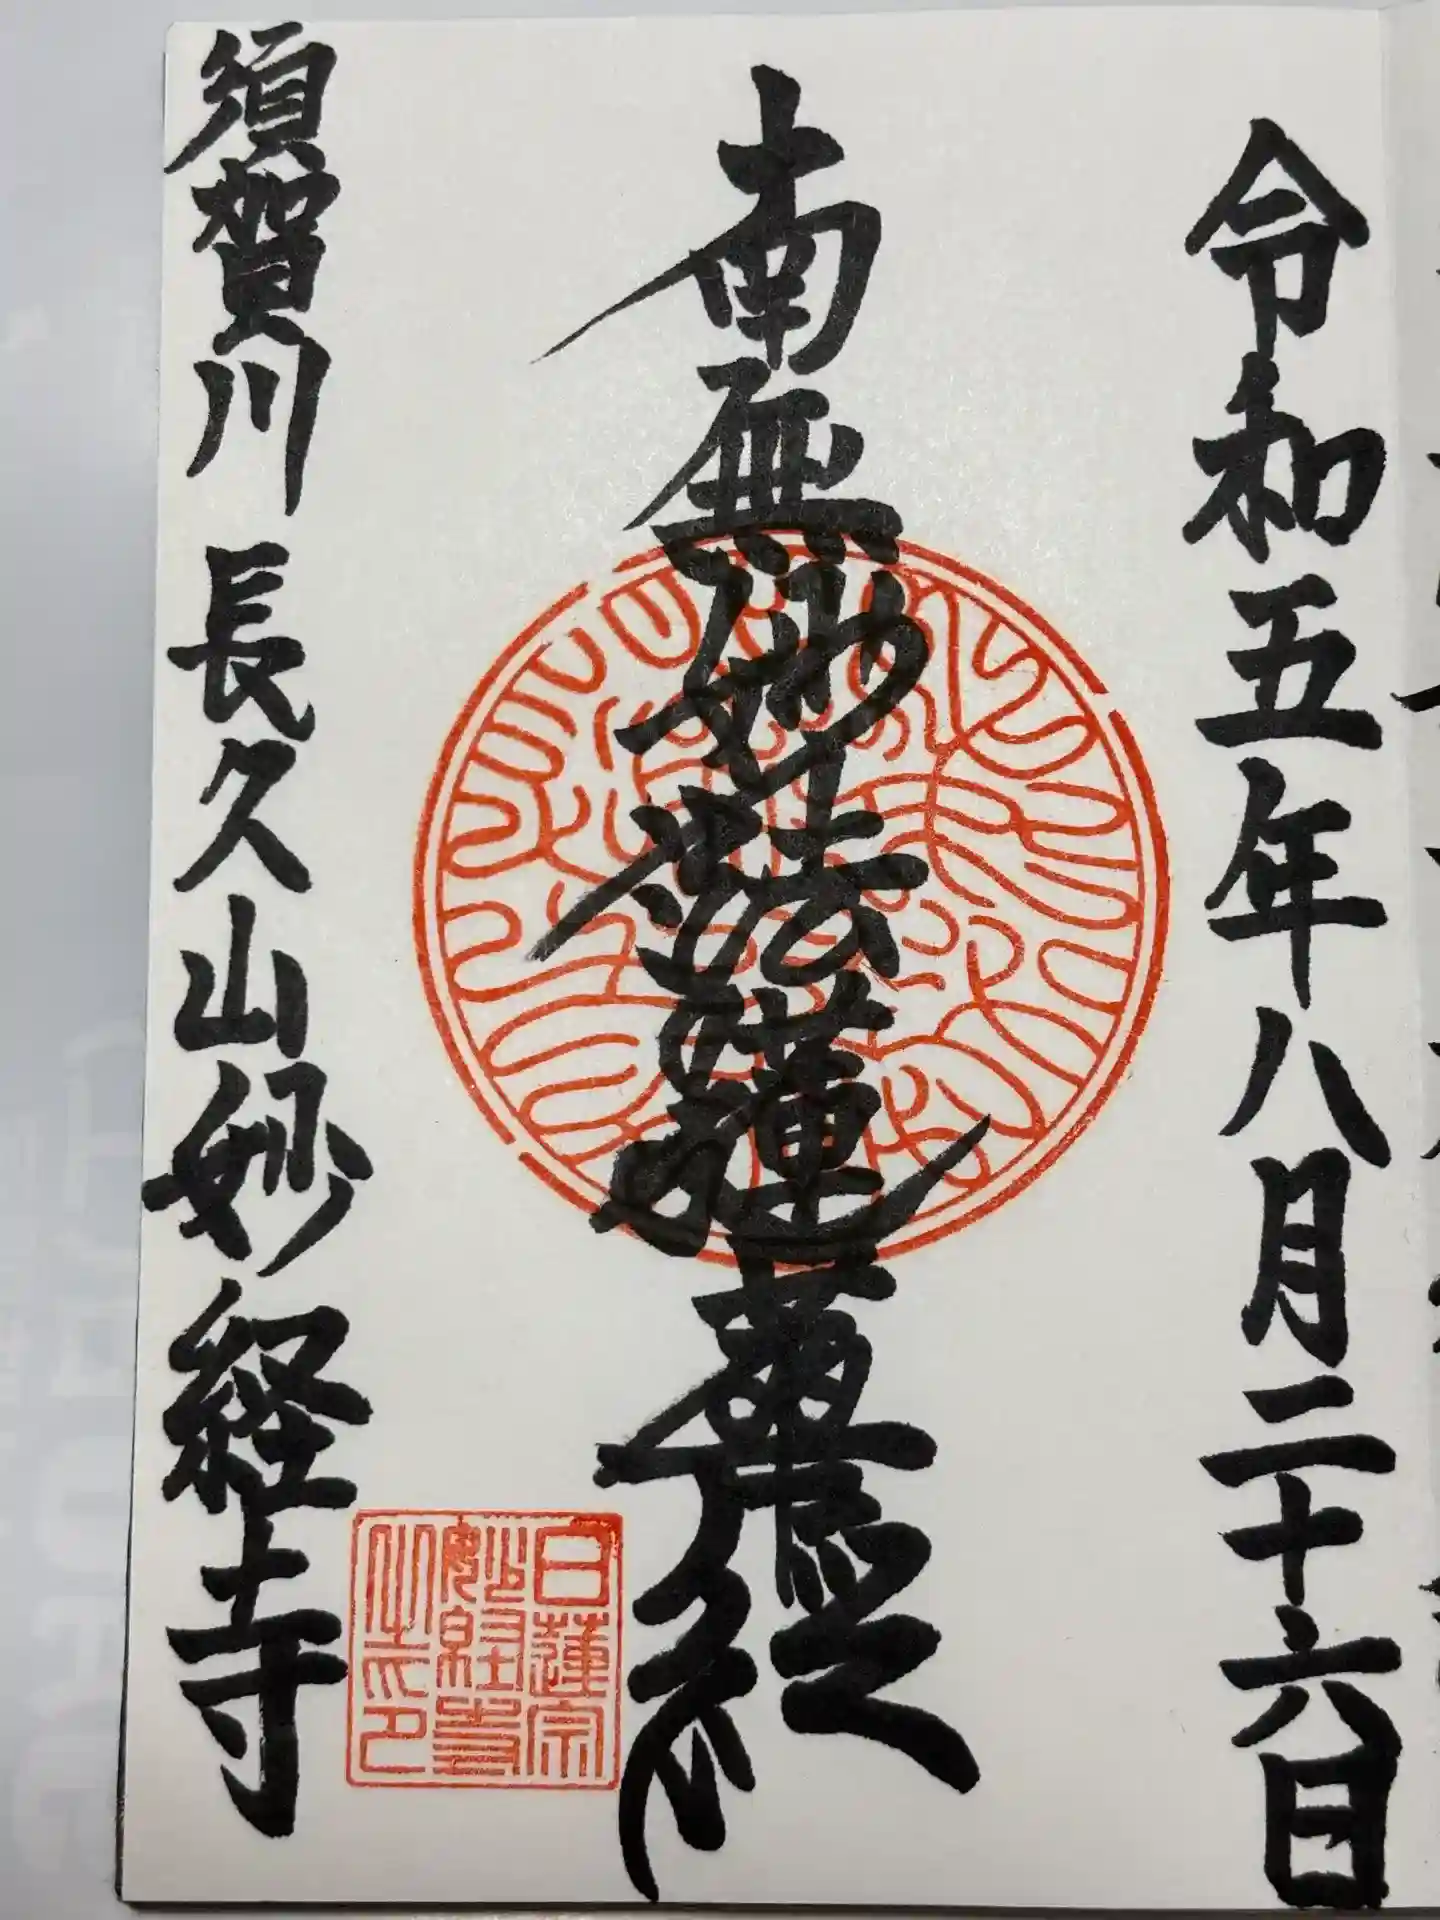 令和五年八月二十六日
南無妙法蓮華經
須賀川 長久山 妙経寺
日蓮宗
妙経寺
之印